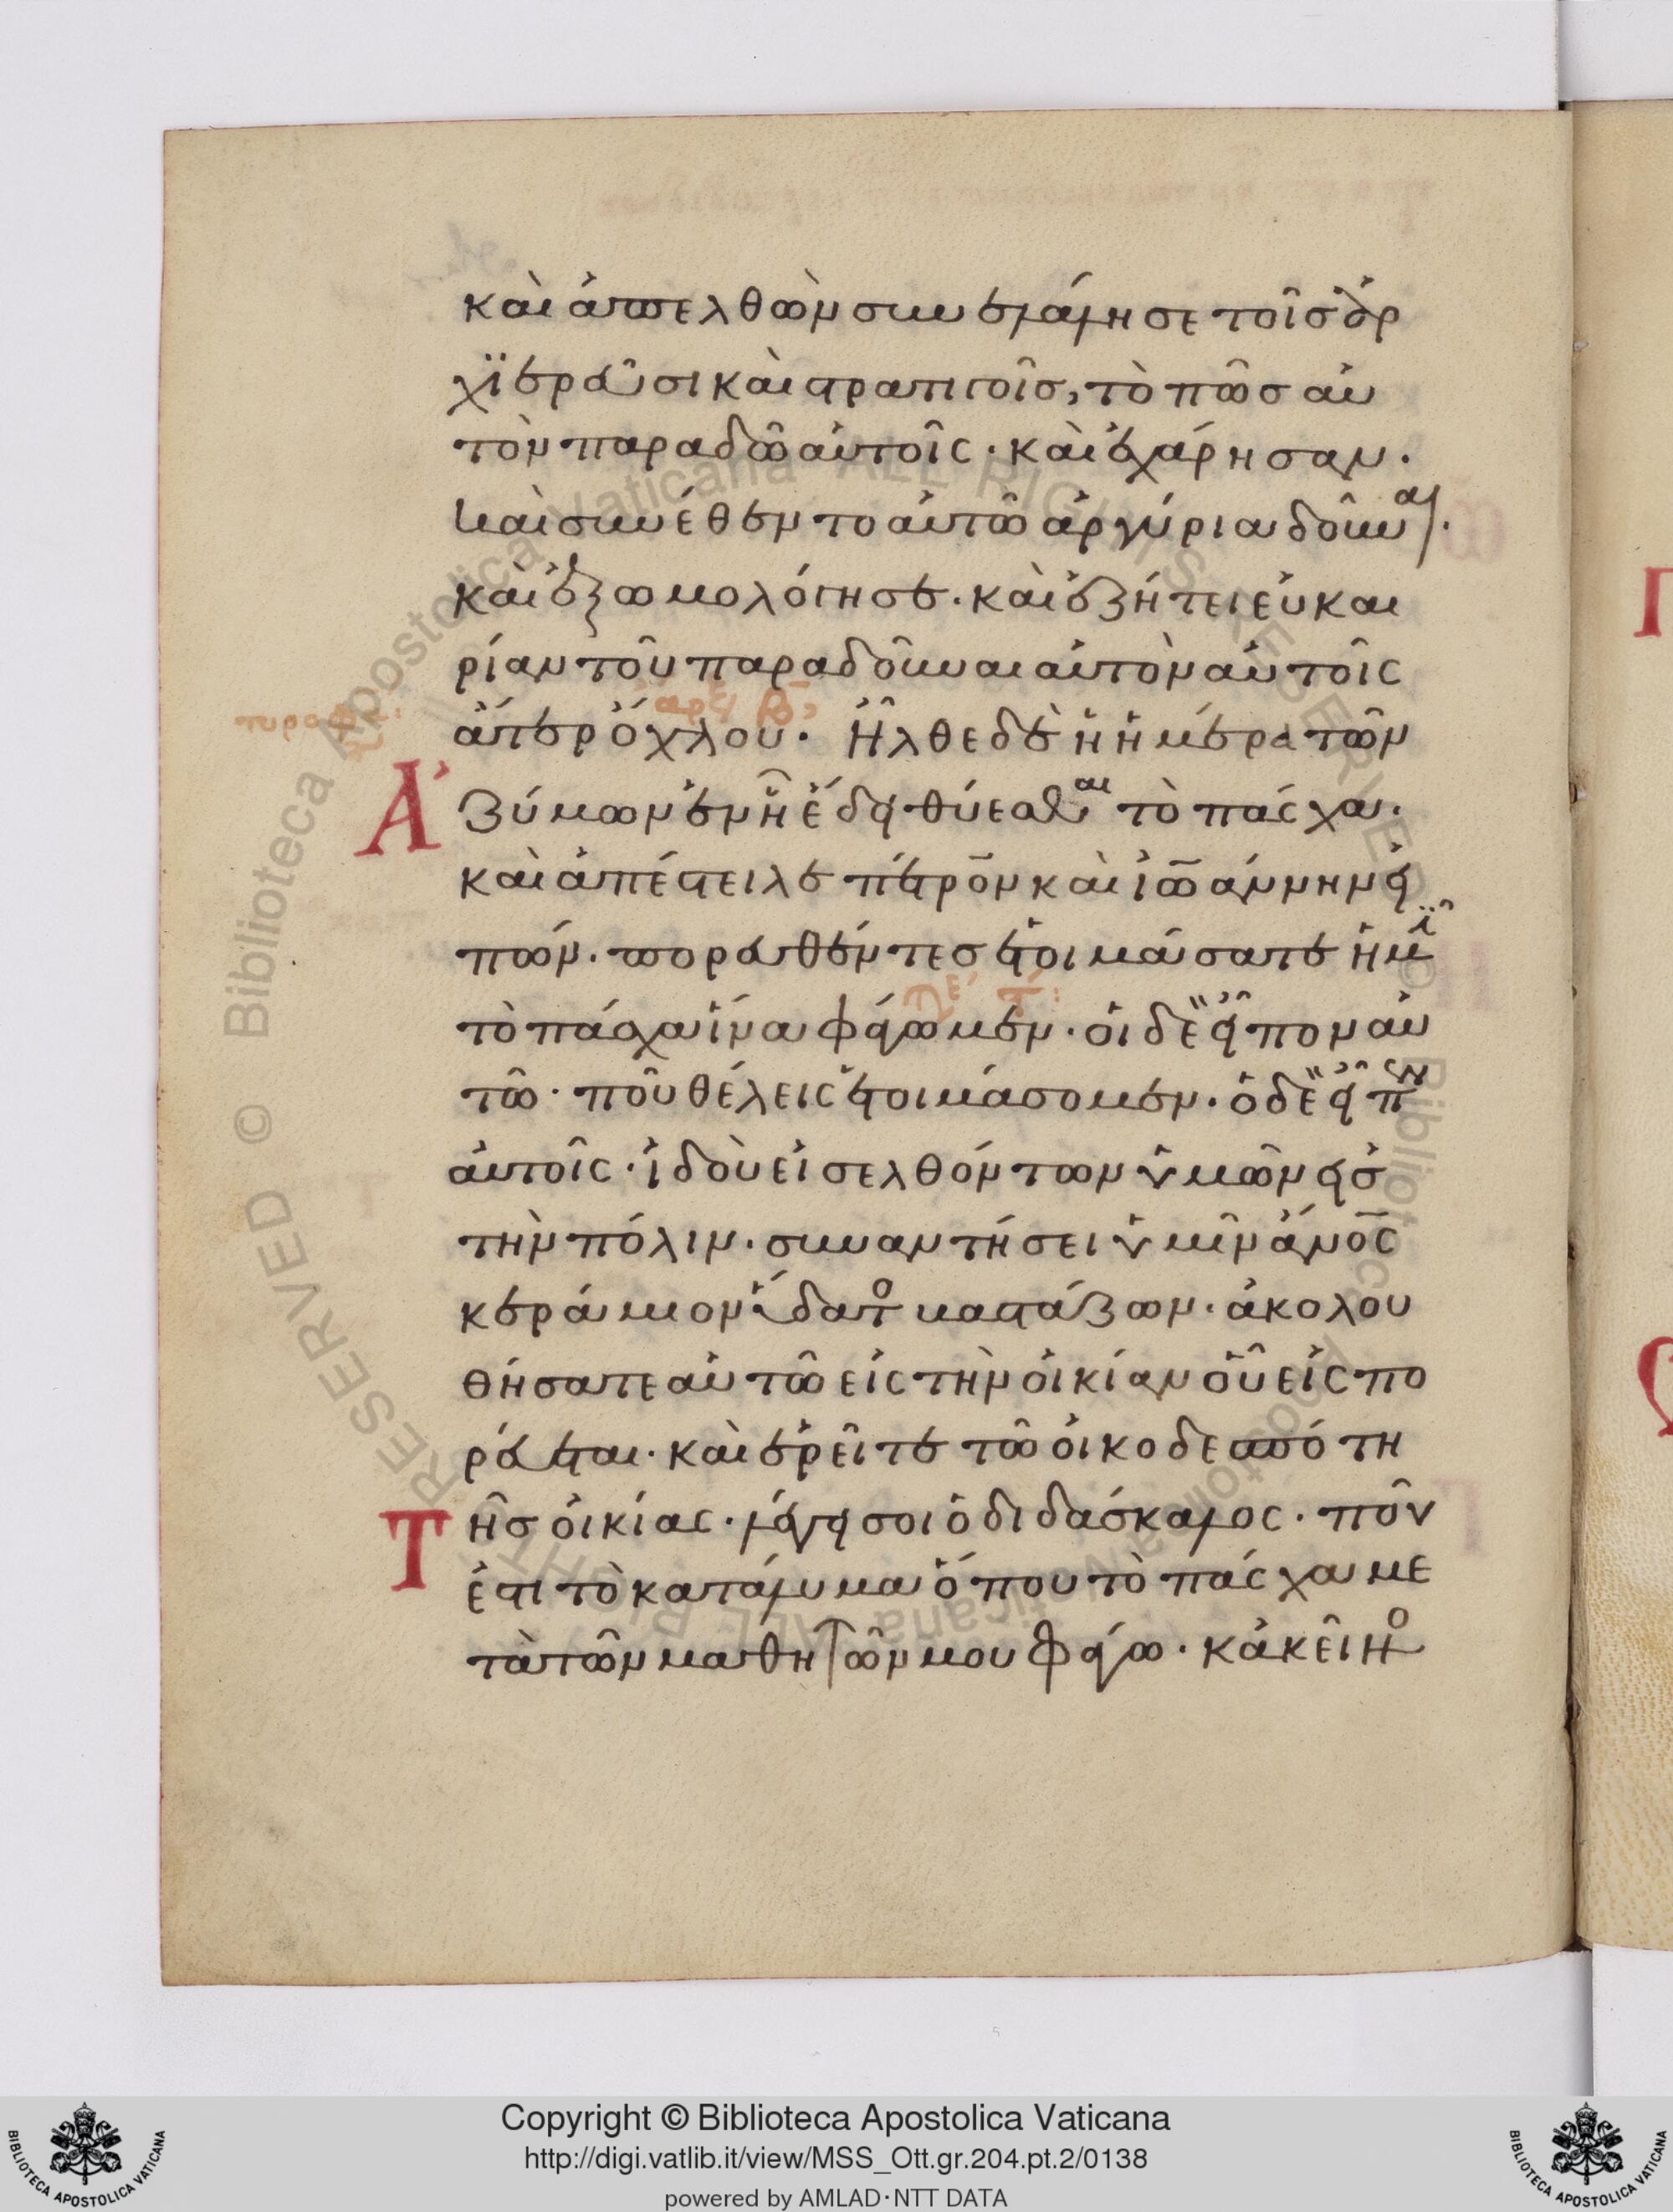 καὶ ἀπελθὼν συνελάλησε τοῖς ἀρ
χϊερεῦσι καὶ στρατιγοῖς, τὸ πῶς αὐ
τὸν παραδῶ αὐτοῖς · καὶ ἐχάρησαν ·
καὶ συνέθεντο αὐτῶ ἀργύρια δοῦναι ·
καὶ ἐξωμολόγησε · καὶ ἐζήτει εὐκαι
ρίαν τοῦ παραδοῦναι αὐτὸν αὐτοῖς
ἄτερ ὄχλου · Ἦλθε δὲ ἡ ἡμέρα τῶν
Ἀζύμων ἐν ἧ ἔδει θύεσθαι τὸ πάσχα ·
καὶ ἀπέστειλε πέτρον καὶ ἰωάννην εἰ
πών · πορευθέντες ἑτοιμάσατε ἡμῖ
τὸ πάσχα ἵνα φάγωμεν · οἱ δὲ εἶπον αὐ
τῶ · ποῦ θέλεις ἑτοιμάσομεν · ὁ δὲ εἶπεν
αὐτοῖς · ἰδοὺ εἰσελθόντων ὑμῶν εἰς
τὴν πόλιν · συναντήσει ὑμῖν ἄνος
κεράμιον ὕδατο βαστάζων · ἀκολου
θήσατε αὐτῶ εἰς τὴν οἰκίαν οὗ εἰσπο
ρεύεται · καὶ ἐρεῖτε τῶ οἰκοδεσπότη
Τῆς οἰκίας · λέγει σοι ὁ διδάσκαλος · ποῦ
ἐστι τὸ κατάλυμα ὅπου τὸ πάσχα με
τὰ τῶν μαθητῶν μου φάγω · κἀκεῖνο
Copyright © Biblioteca Apostolica Vaticana
http://digi.vatlib.it/view/MSS_Ott.gr.204.pt.2/0138
powered by AMLAD·NTT DATA
BIBLIOTECA APOSTOLICA VATICANA
BIBLIOTECA APOSTOLICA VATICANA